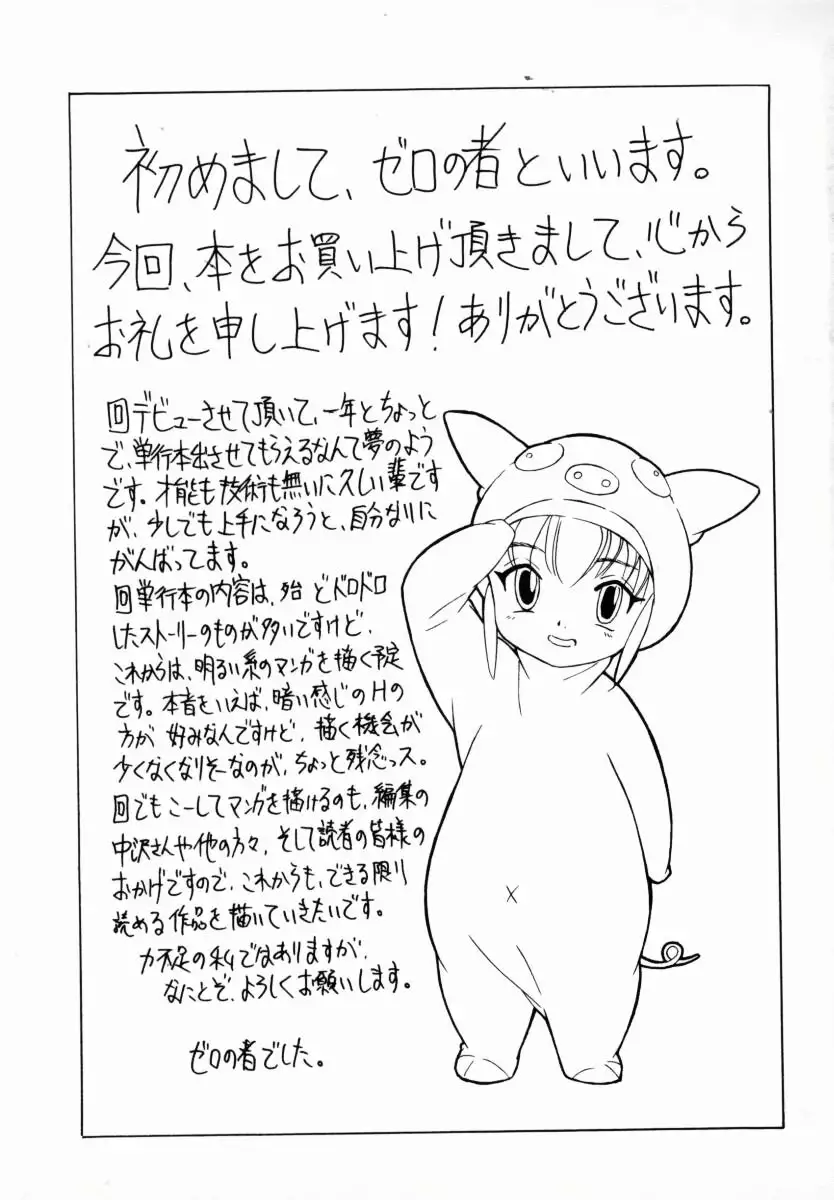 初めまして、ゼロの者といいます。
今回、本をお買い上げ頂きまして、心から
お礼を申し上げます！ありがとうございます。
回デビューさせて頂いて、一年とちょっと
で、単行本出させてもらえるなんて夢のよう
です。才能も技術も無いに久しい輩です
が、少しでも上手になろうと、自分なりに
がんばってます。
回単行本の内容は、殆どドロドロ
したストーリーのものが多いですけど、
これからは、明るい系のマンガを描く予定
です。本音をいえば、暗い感じのHの
方が好みなんですけど、描く機会が
少くなくなりそーなのが、ちょっと残念っス。
回でもこーしてマンガを描けるのも、編集の
中沢さんや他の方々、そして読者の皆様の
おかげですので、これからも、できる限り
読める作品を描いていきたいです。
力不足の私ではありますが、
なにとぞ、よろしくお願いします。
ゼロの者でした。